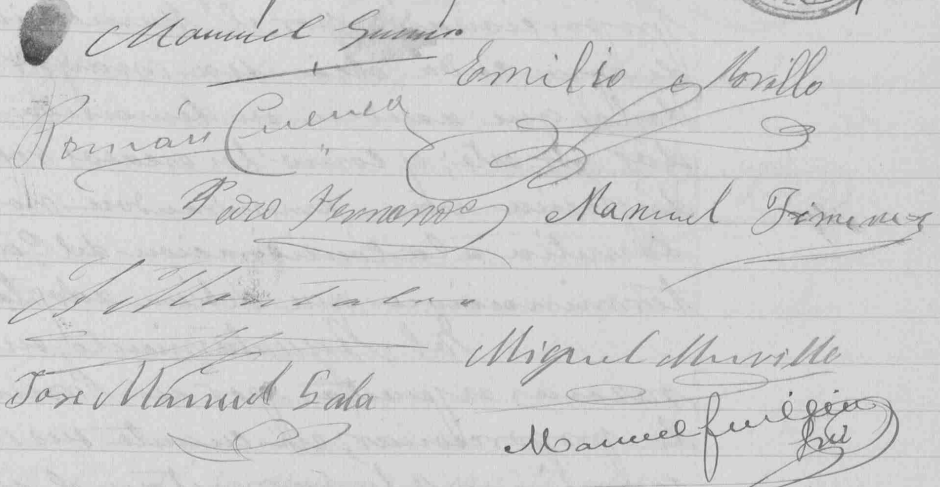 Manuel
Emilio Morillo
Román Cuenca
Pedro Hernando
Manuel Jimenez
A Montalvo
Miguel Murillo
José Manuel Sala
Manuel Guillén